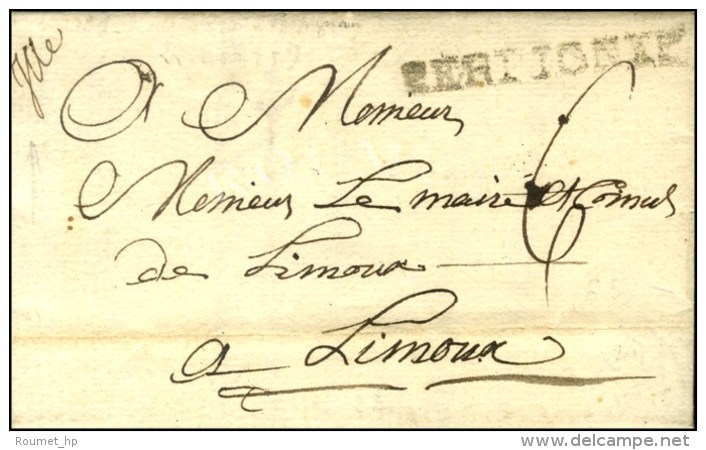 PERPIGNAN
A Monsieur
Monsieur Le maire et Consuls
de Limoux
a Limoux
6
Roumet_hp
delcampe.net